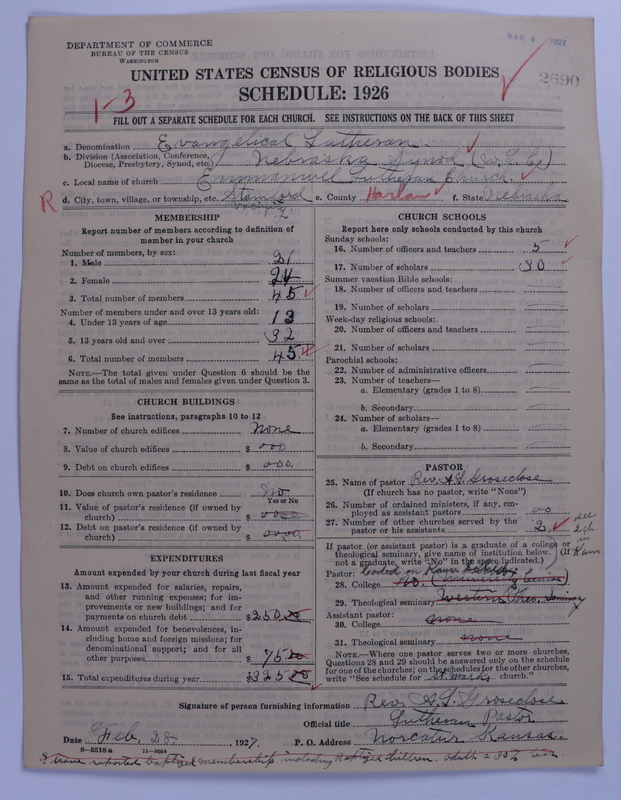 DEPARTMENT OF COMMERCE
BUREAU OF THE CENSUS
WASHINGTON
MAR 4 1927
2690
UNITED STATES CENSUS OF RELIGIOUS BODIES
SCHEDULE: 1926
1-3
FILL OUT A SEPARATE SCHEDULE FOR EACH CHURCH. SEE INSTRUCTIONS ON THE BACK OF THIS SHEET
a. Denomination Evangelical Lutheran
b. Division (Association, Conference, Diocese, Presbytery, Synod, etc.) Nebraska Synod (U.L.C.)
c. Local name of church Emmanuel Lutheran Church
R d. City, town, village, or township, etc. Stamford e. County Harlan f. State Nebraska
MEMBERSHIP
Report number of members according to definition of
member in your church
Number of members, by sex:
1. Male 21
2. Female 24
3. Total number of members 45
Number of members under and over 13 years old:
4. Under 13 years of age 13
5. 13 years old and over 32
6. Total number of members 45
NOTE.—The total given under Question 6 should be the
same as the total of males and females given under Question 3.
CHURCH BUILDINGS
See instructions, paragraphs 10 to 12
7. Number of church edifices None
8. Value of church edifices $ 000
9. Debt on church edifices $ 000
10. Does church own pastor's residence No
Yes or No
11. Value of pastor's residence (if owned by
church) $ 0000
12. Debt on pastor's residence (if owned by
church) $ 0000
EXPENDITURES
Amount expended by your church during last fiscal year
13. Amount expended for salaries, repairs,
and other running expenses; for im-
provements or new buildings; and for
payments on church debt $250.00
14. Amount expended for benevolences, in-
cluding home and foreign missions; for
denominational support; and for all
other purposes $ 75.00
15. Total expenditures during year $325.00
CHURCH SCHOOLS
Report here only schools conducted by this church
Sunday schools:
16. Number of officers and teachers 5
17. Number of scholars 30
Summer vacation Bible schools:
18. Number of officers and teachers
19. Number of scholars
Week-day religious schools:
20. Number of officers and teachers
21. Number of scholars
Parochial schools:
22. Number of administrative officers
23. Number of teachers—
a. Elementary (grades 1 to 8)
b. Secondary
24. Number of scholars—
a. Elementary (grades 1 to 8)
b. Secondary
PASTOR
25. Name of pastor Rev. A.L. Groseclose
(If church has no pastor, write "None")
26. Number of ordained ministers, if any, em-
ployed as assistant pastors 00
27. Number of other churches served by the
pastor or his assistants 2
see
2 ch
in
Kans.
If pastor (or assistant pastor) is a graduate of a college or
theological seminary, give name of institution below. (If
not a graduate, write "No" in the space indicated.)
Pastor:
28. College No.
29. Theological seminary Western Theo. Seminary
Assistant pastor:
30. College none
31. Theological seminary none
NOTE.—Where one pastor serves two or more churches,
Questions 28 and 29 should be answered only on the schedule
for one of the churches; on the schedules for the other churches,
write "See schedule for St. Marks church."
Signature of person furnishing information Rev. A.L. Groseclose
Official title Lutheran Pastor
Date Feb. 28 1927. P. O. Address Norcatur Kansas.
8—5518a 11—9064
I have reported baptized membership, including Baptized children.